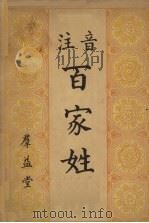 音注
百家姓
羣益堂